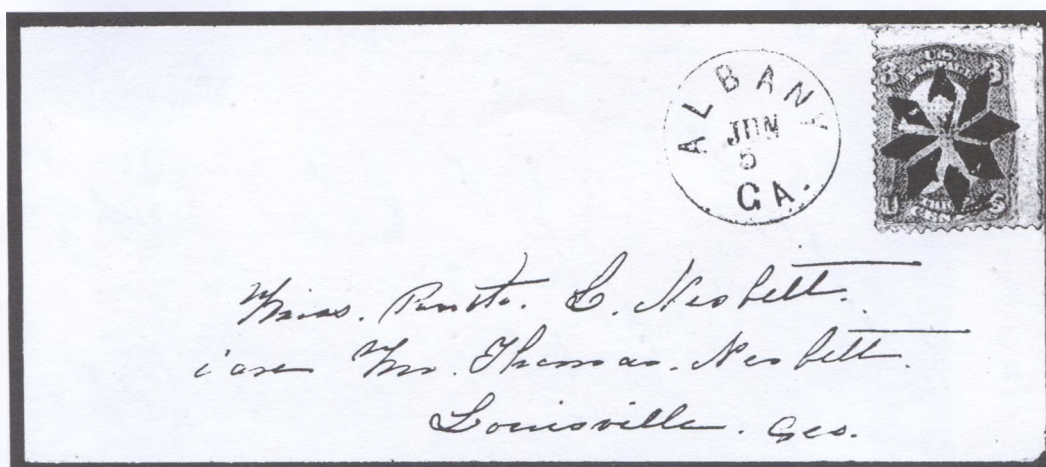 ALBANY
JUN
5
GA.
U.S.
3 3
U S
Miss. L. Nesbett.
care Mr. Thomas. Nesbett.
Louisville. Geo.